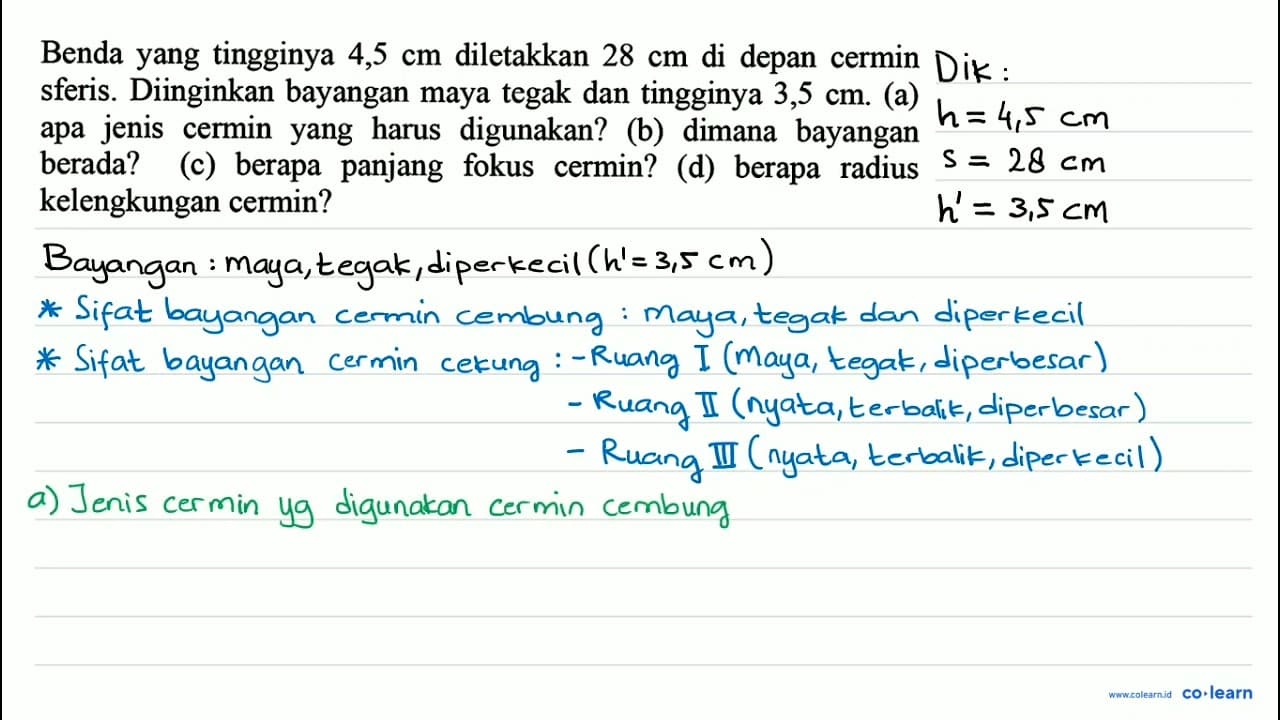 Benda yang tingginya 4,5 cm diletakkan 28 cm di depan cermin
sferis. Diinginkan bayangan maya tegak dan tingginya 3,5 cm. (a)
apa jenis cermin yang harus digunakan? (b) dimana bayangan
berada? (c) berapa panjang fokus cermin? (d) berapa radius
kelengkungan cermin?
Dik :
h = 4,5 cm
s = 28 cm
h' = 3,5 cm
Bayangan : maya, tegak, diperkecil (h' = 3,5 cm)
* Sifat bayangan cermin cembung : maya, tegak dan diperkecil
* Sifat bayangan cermin cekung : - Ruang I (maya, tegak, diperbesar)
- Ruang II (nyata, terbalik, diperbesar)
- Ruang III (nyata, terbalik, diperkecil)
a) Jenis cermin yg digunakan cermin cembung
www.colearn.id co·learn